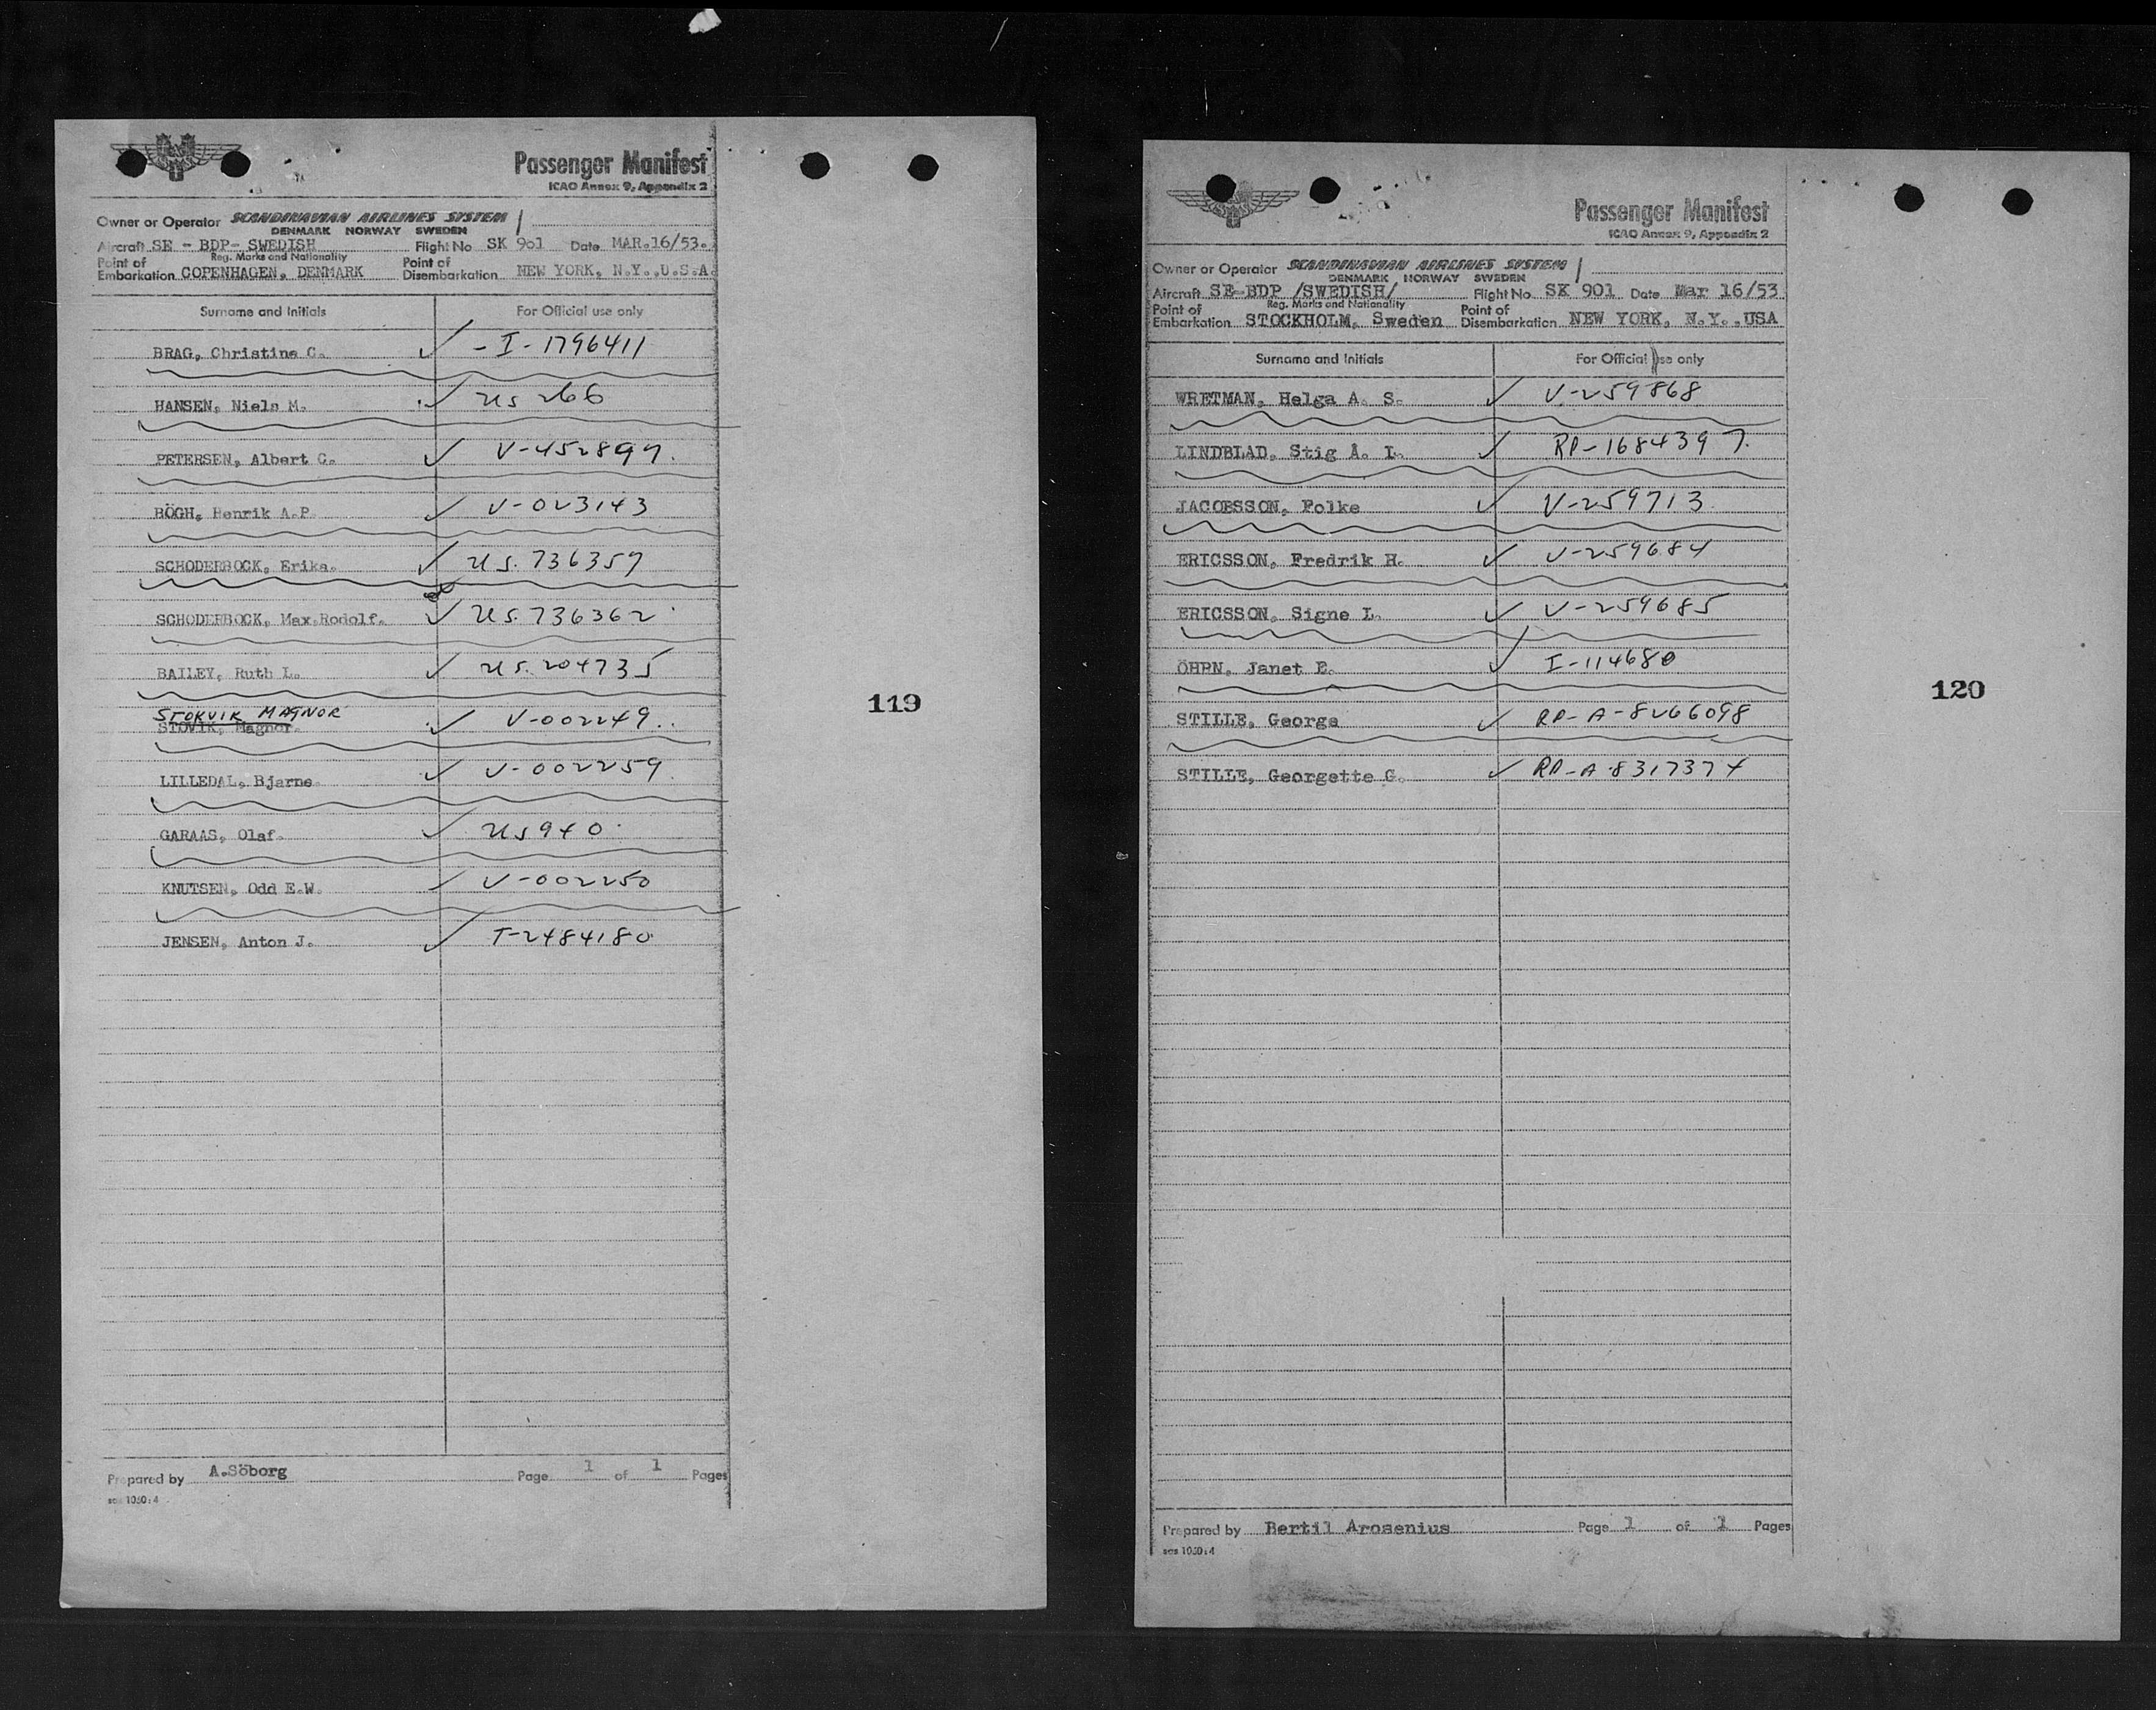 Passenger Manifest
ICAO Annex 9, Appendix 2
Owner or Operator SCANDINAVIAN AIRLINES SYSTEM
DENMARK NORWAY SWEDEN
Aircraft SE - BDP- SWEDISH Flight No SK 901 Date MAR.16/53.
Reg. Marks and Nationality
Point of Embarkation COPENHAGEN, DENMARK Point of Disembarkation NEW YORK, N.Y..U.S.A.
Surname and Initials For Official use only
BRAG, Christine C. ✓ - I - 1796411
HANSEN, Niels M. ✓ US 266
PETERSEN, Albert C. ✓ V-452897.
BÖGH, Henrik A.P. ✓ V-023143
SCHODERBOCK, Erika. ✓ US. 736357
SCHODERBOCK, Max.Rodolf. ✓ US. 736362
BAILEY, Ruth L. ✓ US. 204735
STOKVIK MAGNOR
STOVIK, Magnor. ✓ V-002249..
LILLEDAL, Bjarne. ✓ V-002259.
GARAAS, Olaf. ✓ US 940.
KNUTSEN, Odd E.W. ✓ V-002250
JENSEN, Anton J. ✓ T-2484180
Prepared by A.Söborg Page 1 of 1 Pages
sas 1030:4
119
Passenger Manifest
ICAO Annex 9, Appendix 2
Owner or Operator SCANDINAVIAN AIRLINES SYSTEM
DENMARK NORWAY SWEDEN
Aircraft SE-BDP /SWEDISH/ Flight No. SK 901 Date Mar 16/53
Reg. Marks and Nationality
Point of Embarkation STOCKHOLM, Sweden Point of Disembarkation NEW YORK, N.Y..USA
Surname and Initials For Official use only
WRETMAN, Helga A. S. ✓ V-259868
LINDBLAD, Stig Å. I. ✓ RP-1684397.
JACOBSSON, Folke ✓ V-259713
ERICSSON, Fredrik H. ✓ V-259684
ERICSSON, Signe L. ✓ V-259685
ÖHRN, Janet E. ✓ I-114680
STILLE, George ✓ RP-A-8266098
STILLE, Georgette G. ✓ RP-A-8317374
Prepared by Bertil Arosenius Page 1 of 1 Pages
sas 1030:4
120